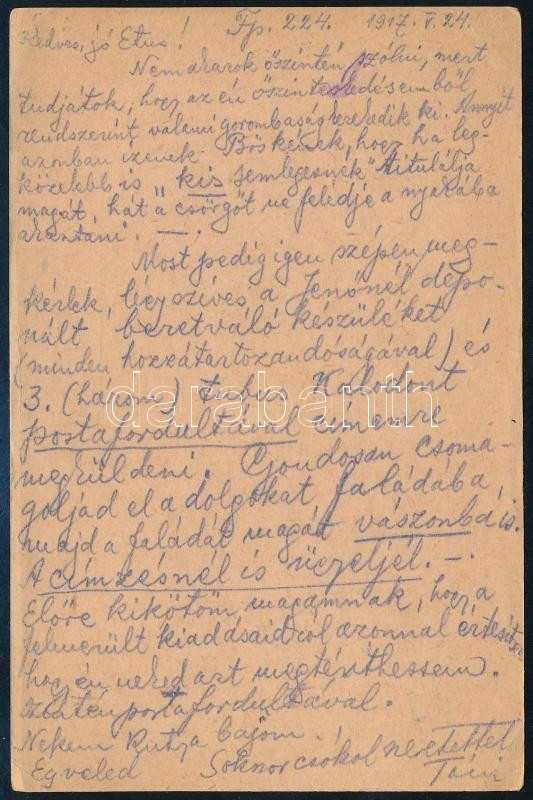 Kedves, jó Etus! Fp. 224. 1917. V. 24.
Nem akarok őszintén szólni, mert
tudjátok, hogy az én őszinteskedésemből
rendszerint valami gorombaság kerekedik ki. Annyit
azonban izenek Böskének, hogy ha leg-
közelebb is „kis semlegesnek" titulálja
magát, hát a csörgőt ne feledje a nyakába
akasztani. —.
Most pedig igen szépen meg-
kérlek, légy szíves a Jenőnél depo-
nált beretváló készüléket
(minden hozzátartozandóságával) és
3. (három) tubus Kalodont
postafordultával címemre
megküldeni. Gondosan csoma-
goljad el a dolgokat faládába,
majd a faládát magát vászonba is.
A címzésnél is ügyeljél. —.
Előre kikötöm magamnak, hogy a
felmerült kiadásaidról azonnal értesíts
hogy én neked azt megtéríthessem.
szintén postafordultával.
Nekem Kutya bajom.!
Egyeled Sokszor csókol szeretettel
darabanth